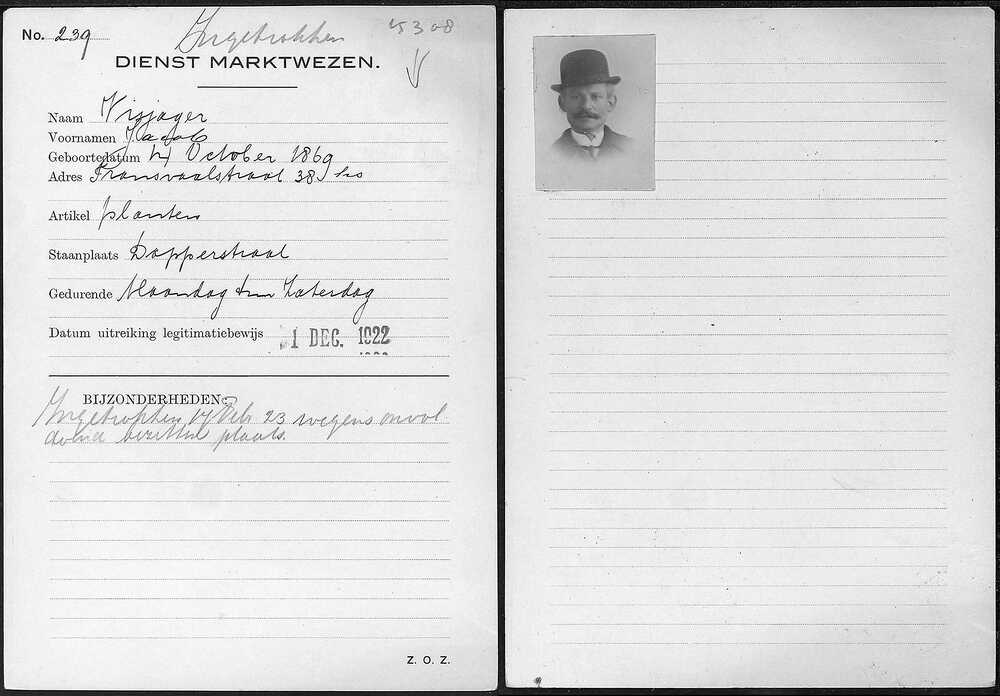 No. 239
Ingetrokken
5308
DIENST MARKTWEZEN.
Naam Visjager
Voornamen Jacob
Geboortedatum 4 October 1869
Adres Transvaalstraat 38 hs
Artikel planten
Staanplaats Dapperstraat
Gedurende Maandag t/m Zaterdag
Datum uitreiking legitimatiebewijs 1 DEC. 1922
BIJZONDERHEDEN:
Ingetrokken 17 Feb 23 wegens onvol-
doend bezetten plaats.
Z. O. Z.